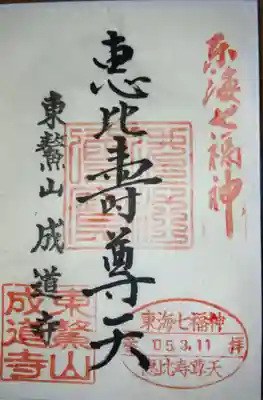 東海七福神
恵比寿尊天
東鰲山成道寺
東鰲山
成道寺
東海七福神
05.3.11
拝
恵比寿尊天